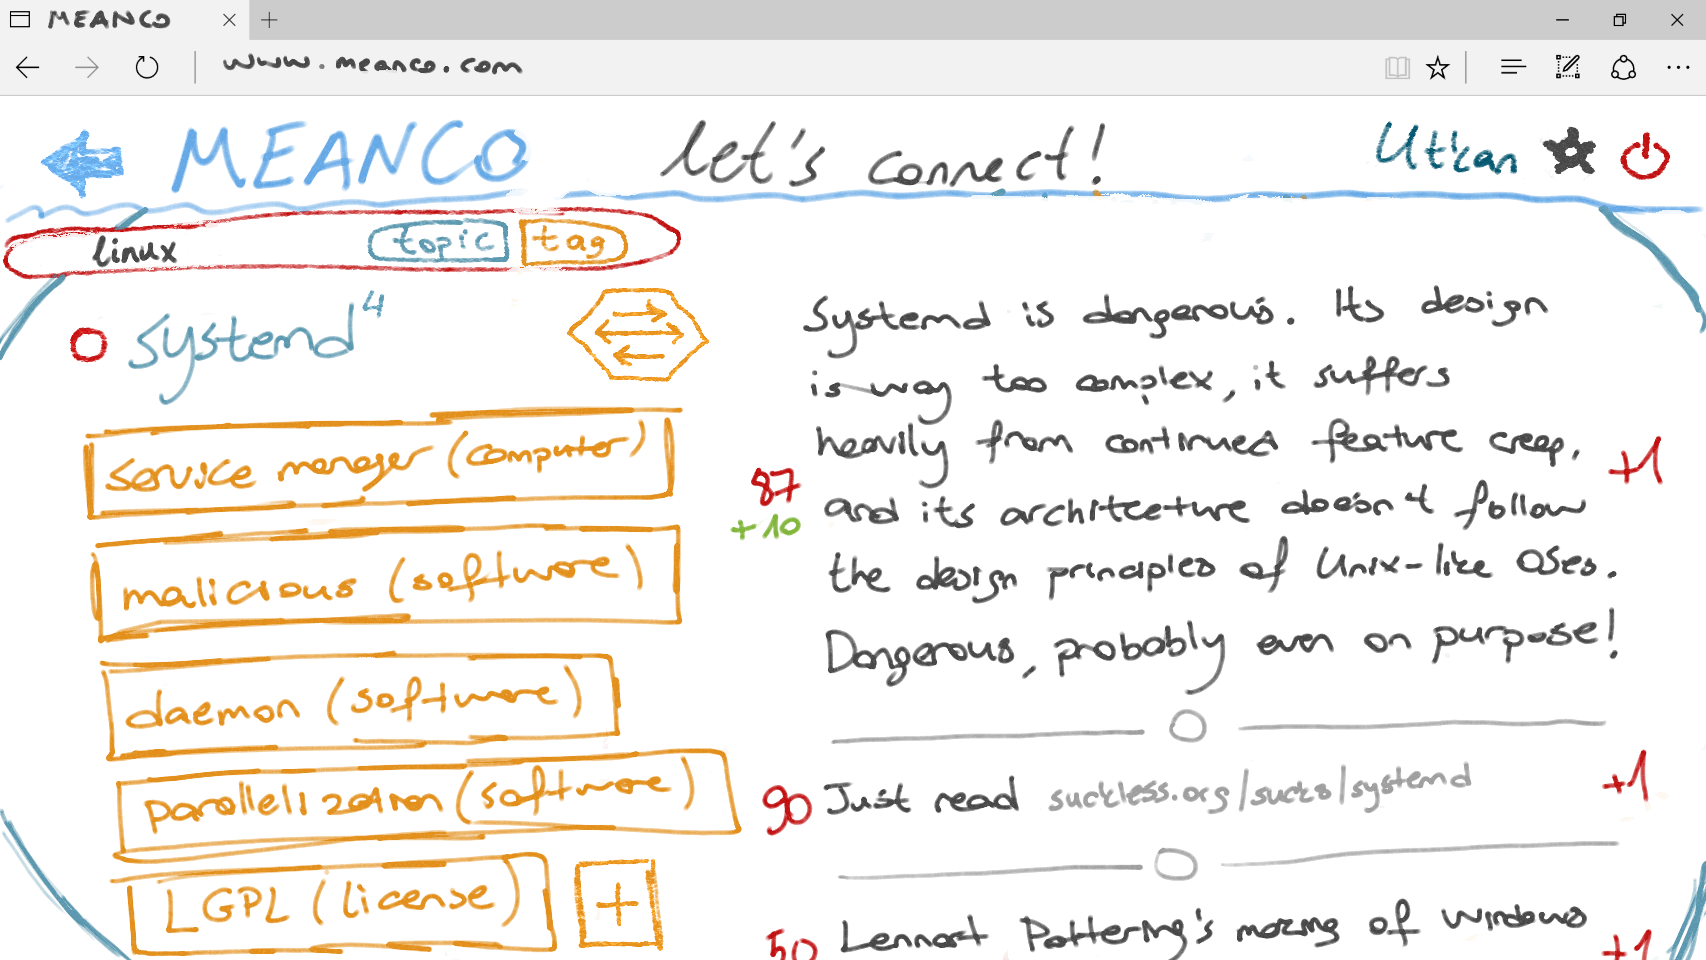 MEANCO
www.meanco.com
MEANCO let's connect! Utkan
linux topic tag
systemd 4
service manager (computer)
malicious (software)
daemon (software)
parallelization (software)
LGPL (license) +
Systemd is dangerous. Its design
is way too complex, it suffers
heavily from continued feature creep,
and its architecture doesn't follow
the design principles of Unix-like OSes.
Dangerous, probably even on purpose!
87
+10
+1
90 Just read suckless.org/sucks/systemd +1
50 Lennart Pottering's mozing of windows +1